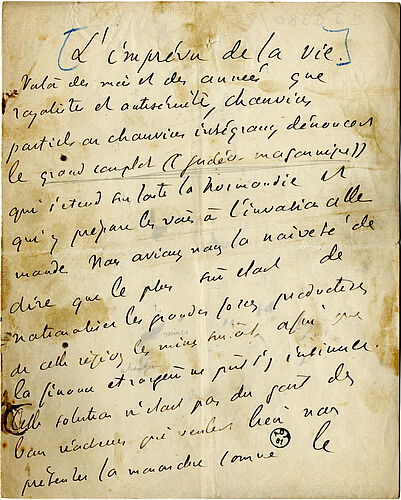 [L'imprévu de la vie.]
Voilà des mois et des années que
royaliste et antisémite, chauvins
partiels ou chauvins intégraux, dénoncent
le grand complot (judéo-maçonnique))
qui s'étend sur toute la Normandie et
qui y prépare les voies à l'invasion alle
mande. Nous avions nous la naïveté de
dire que le plus sûr était de
nationaliser les grandes forces productives
de cette région, les mines surtout, afin que
la finance étrangère ne pût s'y insinuer.
Cette solution n'était pas du goût des
bons réacteurs qui veulent bien nous
présenter la monarchie comme le